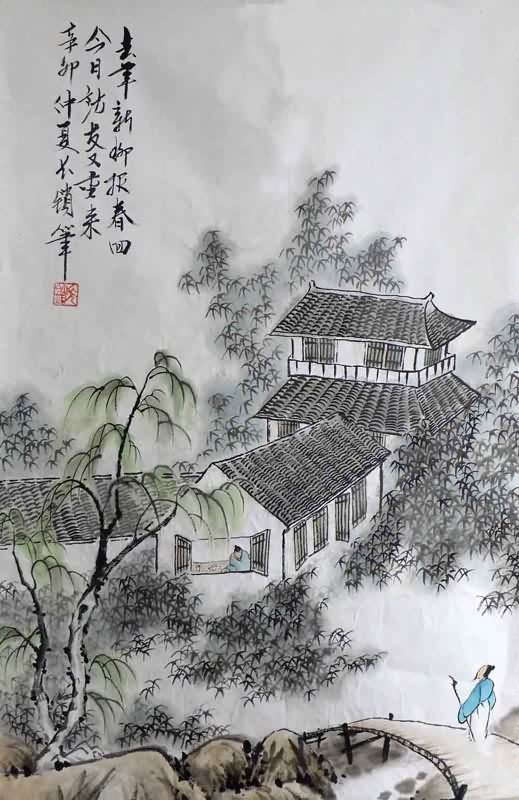 去年新柳报春回
今日訪友又重来
辛卯仲夏
筆